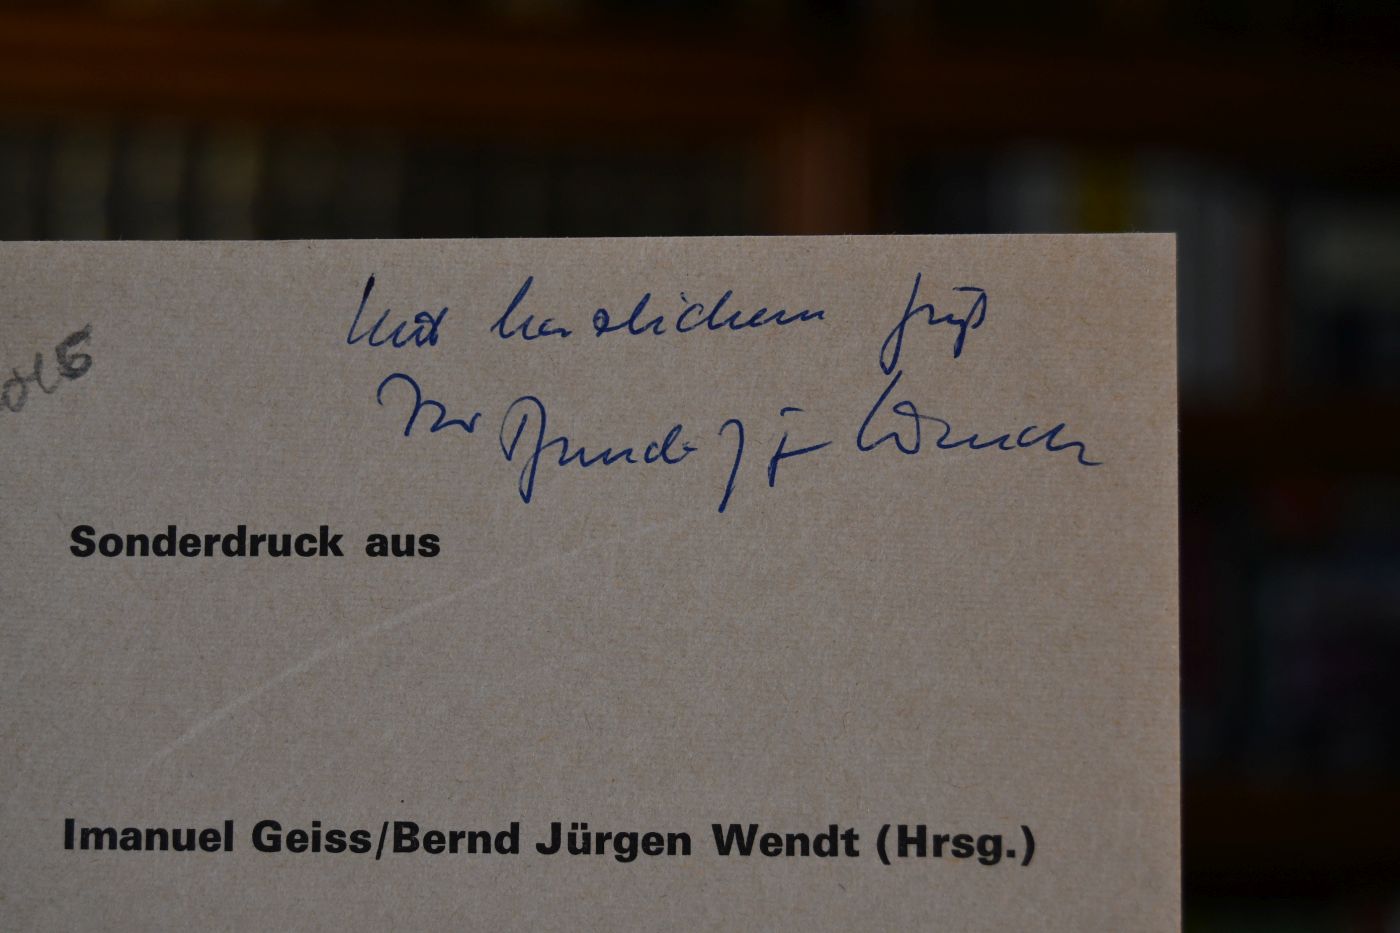 Mit herzlichem Gruß
Ihr Bernd Jü Wendt
Sonderdruck aus
Imanuel Geiss/Bernd Jürgen Wendt (Hrsg.)